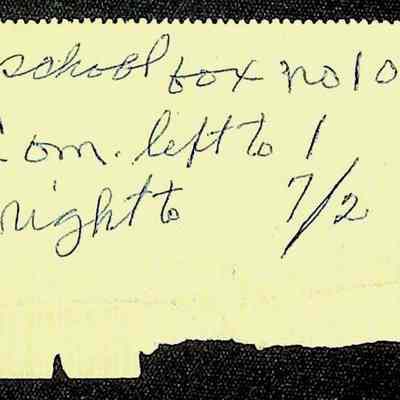 school box no 10
Com. left to 1
right to 7/2